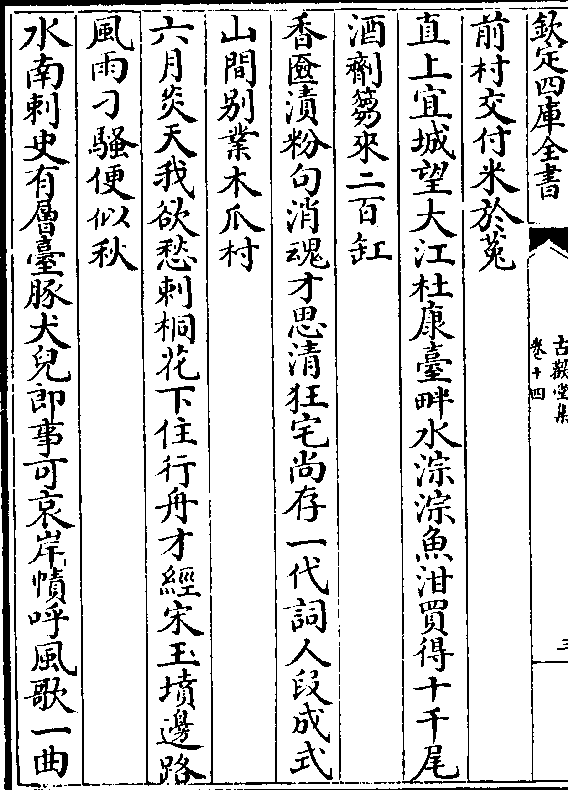 欽定四庫全書
古歡堂集
卷十四
三
前村交付米於菟
直上宜城望大江杜康臺畔水淙淙魚泔買得十千尾
酒劑篘來二百缸
香匳漬粉句消魂才思清狂宅尚存一代詞人段成式
山間别業木爪村
六月炎天我欲愁刺桐花下住行舟才經宋玉墳邊路
風雨刁騷便似秋
水南刺史有層臺豚犬兒郎事可哀岸幘呼風歌一曲